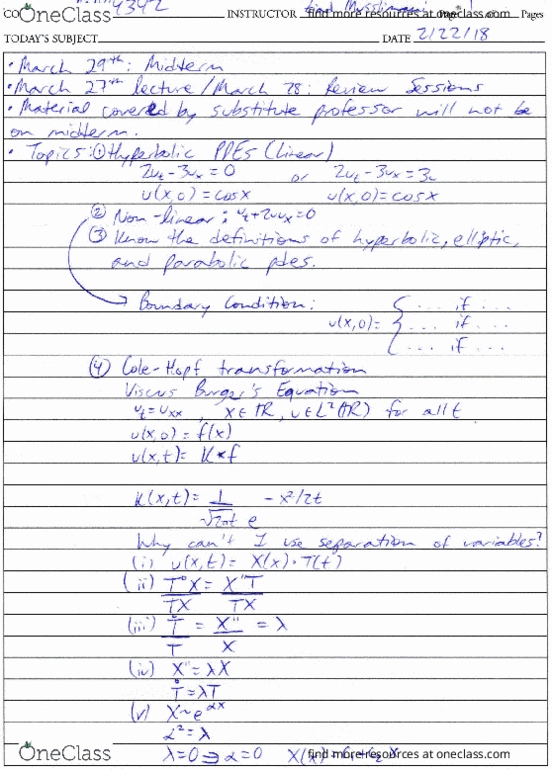 OneClass
find more resources at oneclass.com
4342
CO INSTRUCTOR Pages
TODAY'S SUBJECT DATE 2/22/18
• March 29th: Midterm
• March 27th lecture / March 28: Review Sessions
• Material covered by substitute professor will not be
on midterm.
• Topics: ① Hyperbolic PDEs (Linear)
2ut - 3ux = 0 or 2ut - 3ux = 3u
u(x,0) = cosx u(x,0) = cosx
② Non-linear; ut + 2uux = 0
③ Know the definitions of hyperbolic, elliptic,
and parabolic pdes.
Boundary Condition:
u(x,0) = { ... if ...
... if ...
... if ...
(4) Cole-Hopf transformation
Viscus Burger's Equation
ut = uxx , x ∈ ℝ, u ∈ L²(ℝ) for all t
u(x,0) = f(x)
u(x,t) = K * f
K(x,t) = 1/√2πt e - x²/2t
Why can't I use separation of variables?
(i) u(x,t) = X(x) · T(t)
(ii) ṪX/TX = X''T/TX
(iii) Ṫ/T = X''/X = λ
(iv) X'' = λX
Ṫ = λT
(v) X ~ e^αx
α² = λ
λ = 0 ⇒ α = 0 X(x)
OneClass
find more resources at oneclass.com